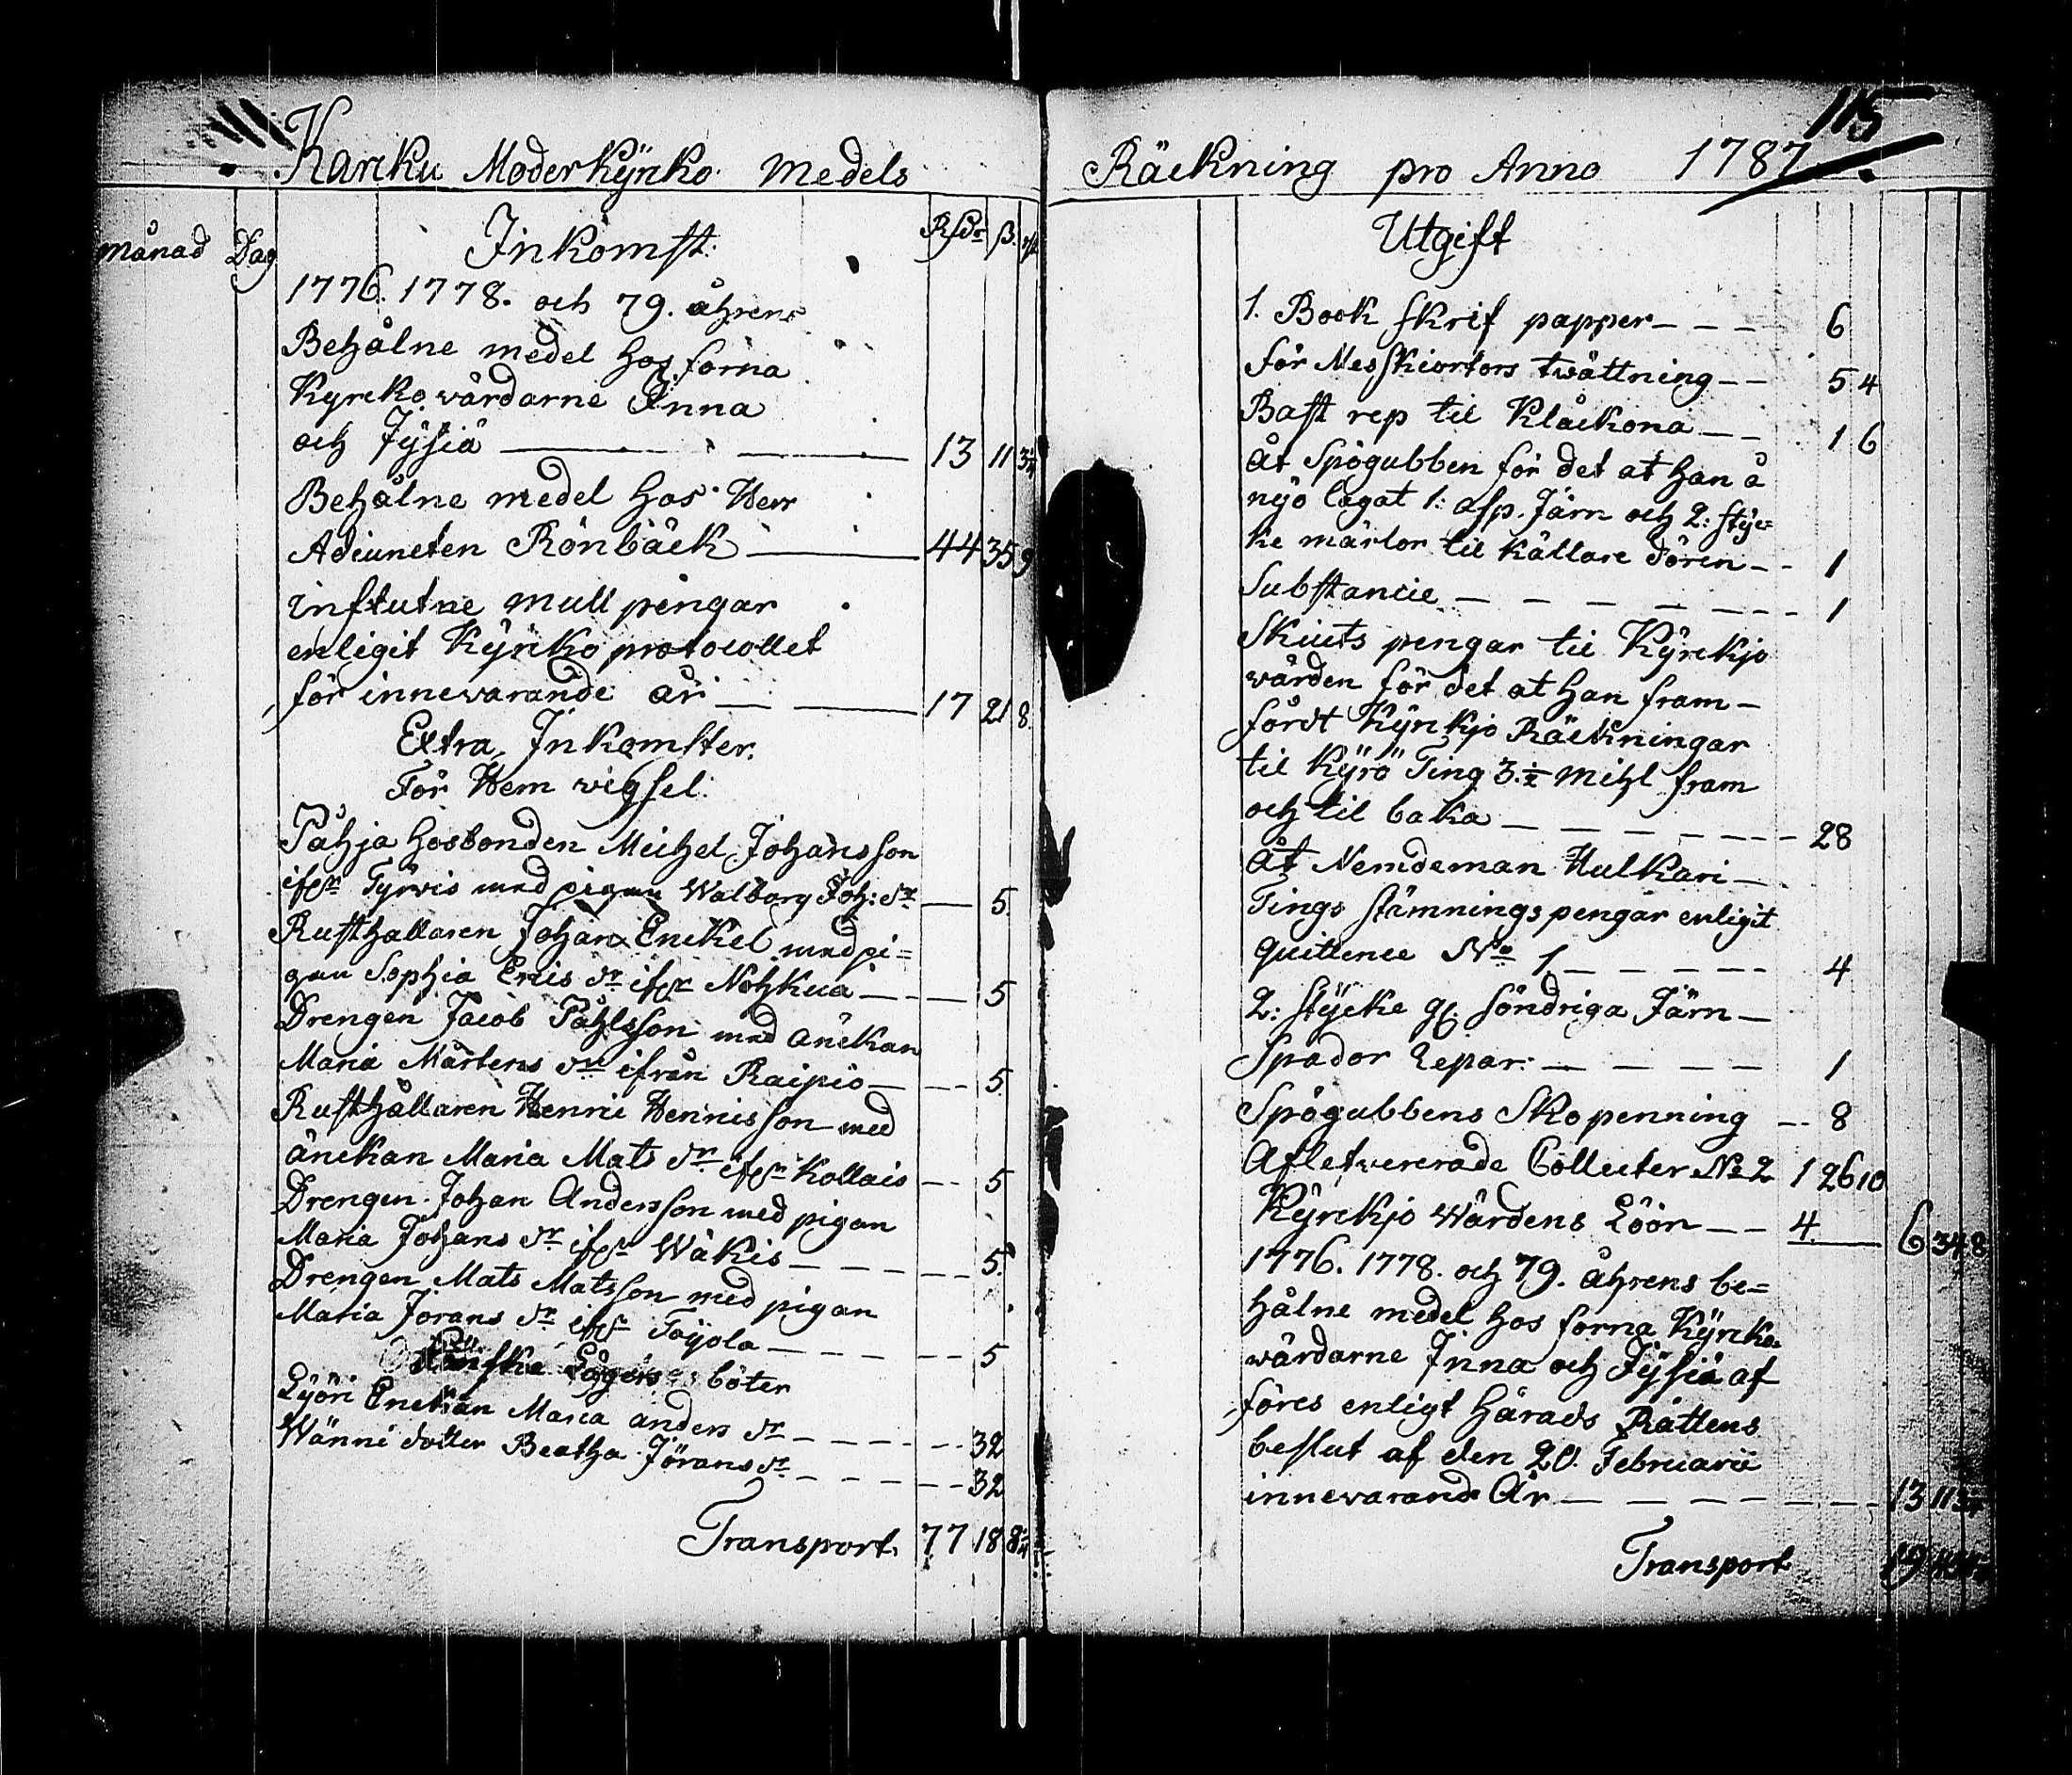 115
Karcku Moderkÿrko medels
Månad Dag Inkomst: Rsdr ß. rst
1776. 1778. och 79. åhrens
Behålne medel hos forna
Kyrcko wårdarne Inna
och Jÿsiä — 13 11 3 1/4
Behålne medel hos Herr
Adiuncten Rönbäck — 44 35 9
influtne mull pengar
enligit Kÿrko protocollet
för innevarande år — 17 21 8.
Extra Inkomster.
För Hem vigsel.
Påhja hosbonden Michel Johansson
ifrn Tyrvis med pigan Walborg Joh: dr — 5.
Rusthallaren Johan Enckel med pi=
gan Sophia Erics dr ifrn Nohkua — 5
Drengen Jacob Påhlsson med änckan
Maria Mårtens dr ifrån Raipio — 5.
Rusthållaren Henric Hennisson med
änckan Maria Mats dr ifrn Kollais — 5
Drengen Johan Andersson med pigan
Maria Johans dr ifrn Wäkis — 5.
Drengen Mats Matsson med pigan
Maria Jörans dr ifrn Tojola — 5
Lägers böter
Lÿöri Enckan Maria anders dr — 32
Wänni dotter Beatha Jörans dr — 32
Transport. 77 18 8 1/4
Räckning pro Anno 1787.
Utgift
1. Book skrif papper — 6
för Messkiortors twättning — 5 4
Bast rep til Klåckona — 1 6
åt Spögubben för det at han å
nÿo lagat 1: asp. Järn och 2: stÿc=
ke märlor til källare dören — 1
Substancie — 1
Skiuts pengar til Kÿrckjo
wården för det at han fram-
fördt Kÿrckjo Räckningar
til Kÿrö Ting 3. 1/2 mihl fram
och til baka — 28
åt Nemdeman Hulkari —
Tings stämnings pengar enligit
quittence No 1 — 4
2: stÿcke gl. söndriga Järn —
Spador Repar: — 1
Spögubbens Skopenning — 8
Aflefwererade Collecter No 2 1 26 10
Kÿrckjo Wärdens Löön — 4. 6 34 8
1776. 1778. och 79. åhrens be=
hålne medel hos forna Kÿrcko
wårdarne Inna och Jÿsiä af
föres enligt härads Rättens
beslut af den 20. Februarii
innevarand År — 13 11 3 1/4
Transport 19